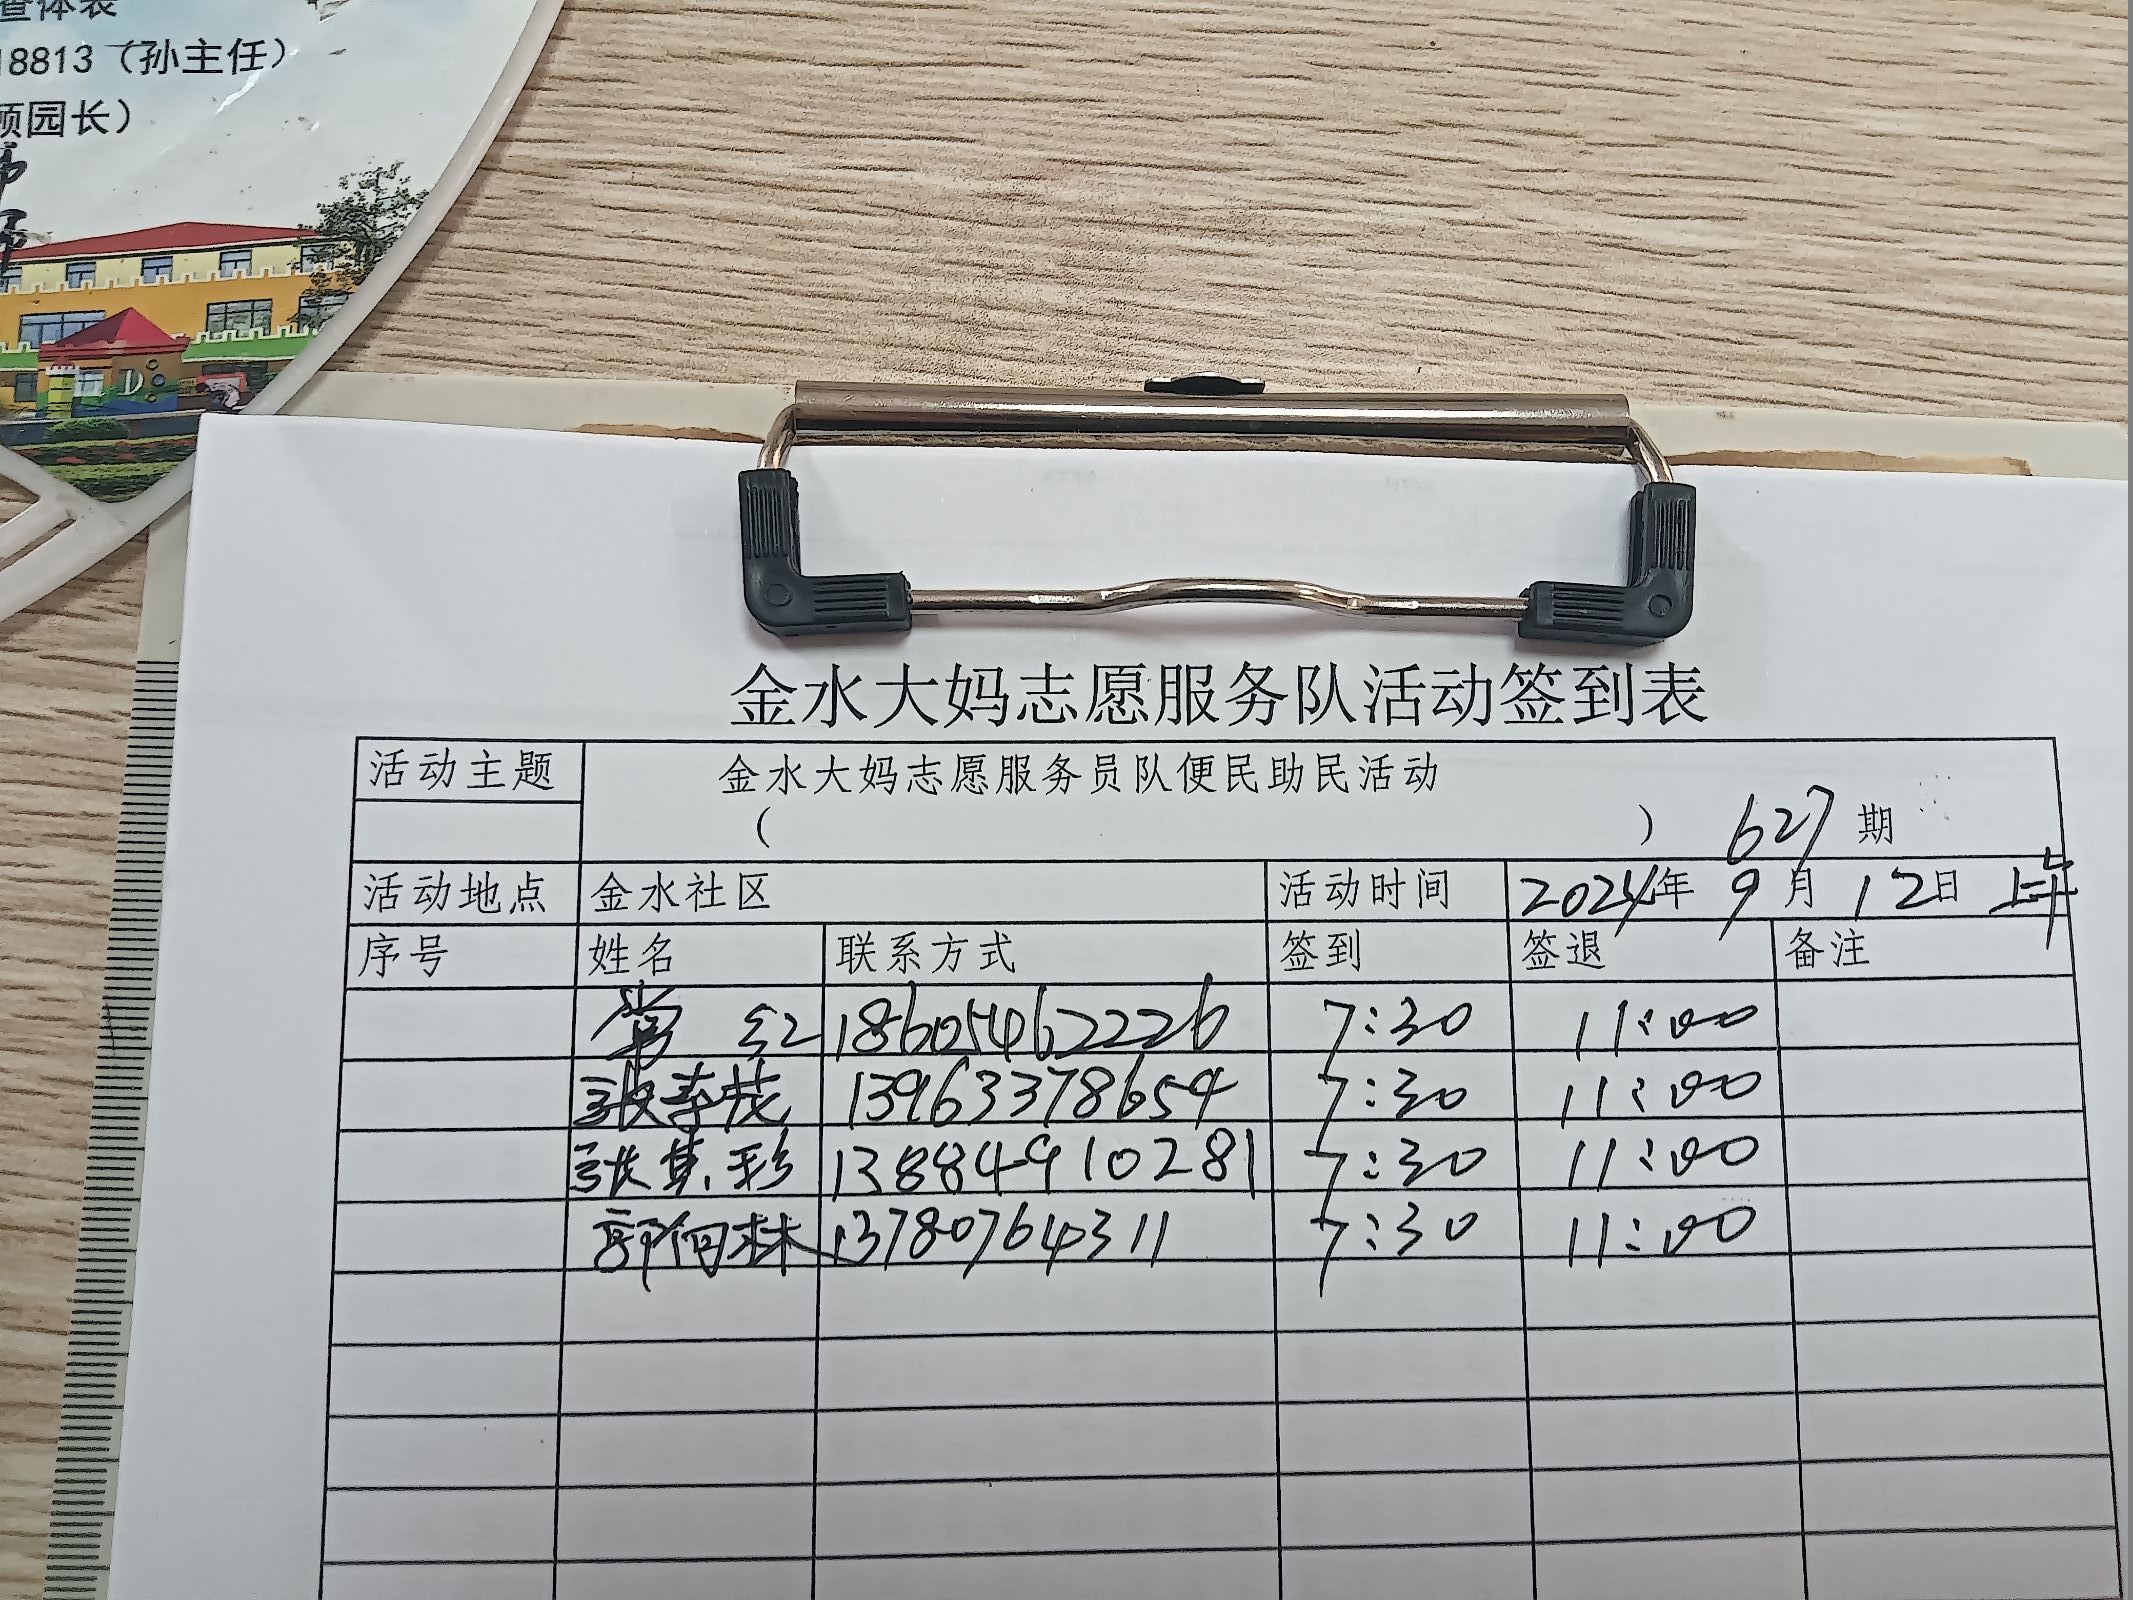 查体表
18813（孙主任）
园长）
金水大妈志愿服务队活动签到表
活动主题 金水大妈志愿服务员队便民助民活动
（ ） 627 期
活动地点 金水社区 活动时间 2024年 9月 12日 上午
序号 姓名 联系方式 签到 签退 备注
红 18605462226 7:30 11:00
张 茂 13963378654 7:30 11:00
张 彩 13884910281 7:30 11:00
郭向林 13780764311 7:30 11:00